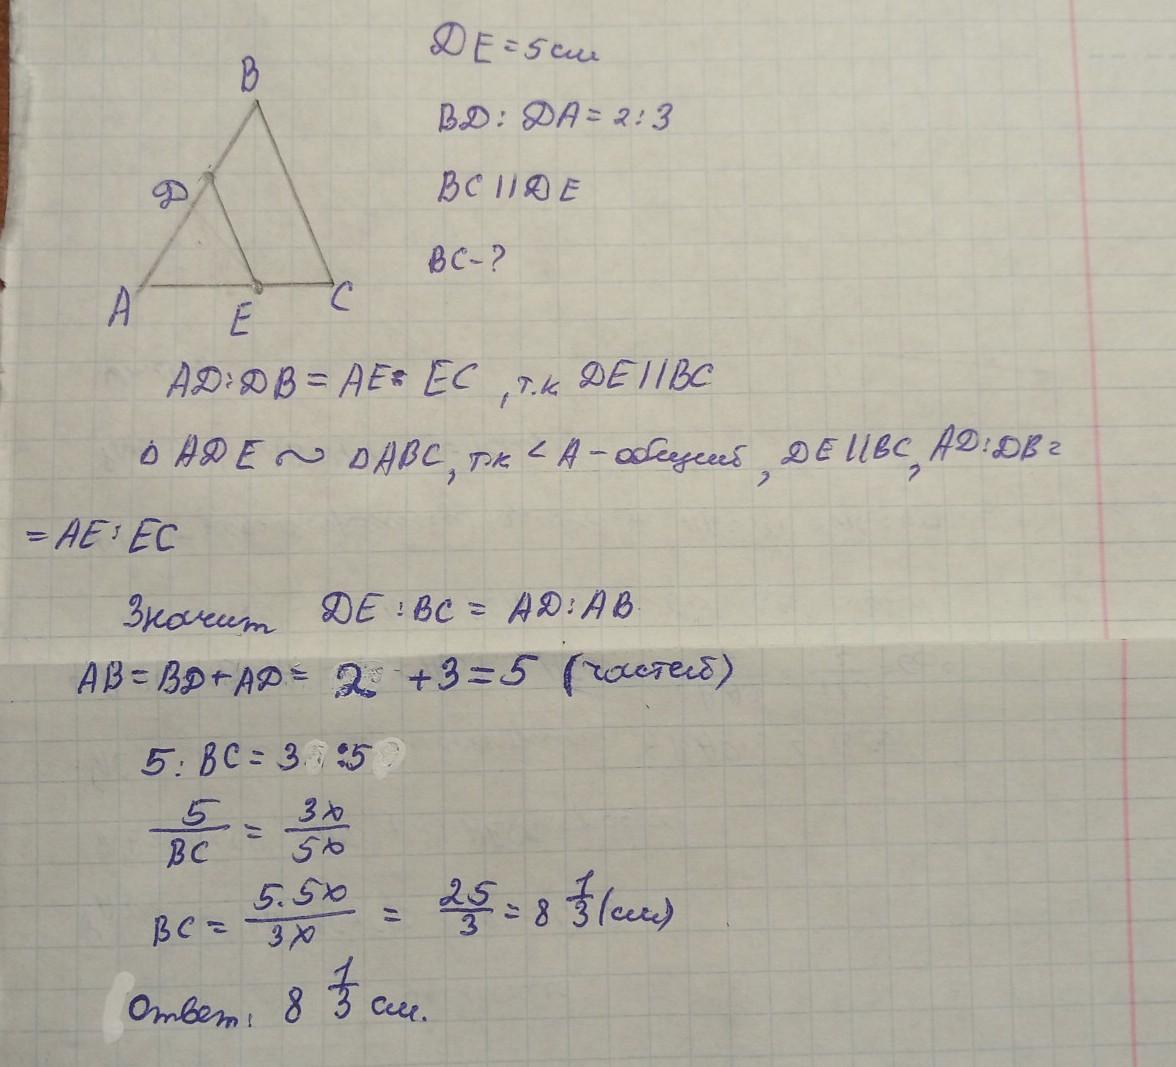 DE = 5 см
B
BD : DA = 2 : 3
D
BC || DE
BC - ?
A
E
C
AD : DB = AE : EC, т.к DE || BC
△ ADE ~ △ ABC, т.к < A - общий, DE || BC, AD : DB =
= AE : EC
Значит DE : BC = AD : AB
AB = BD + AD = 2 + 3 = 5 (частей)
5 : BC = 3 : 5
5/BC = 3x/5x
BC = 5 · 5x/3x = 25/3 = 8 1/3 (см)
Ответ: 8 1/3 см.